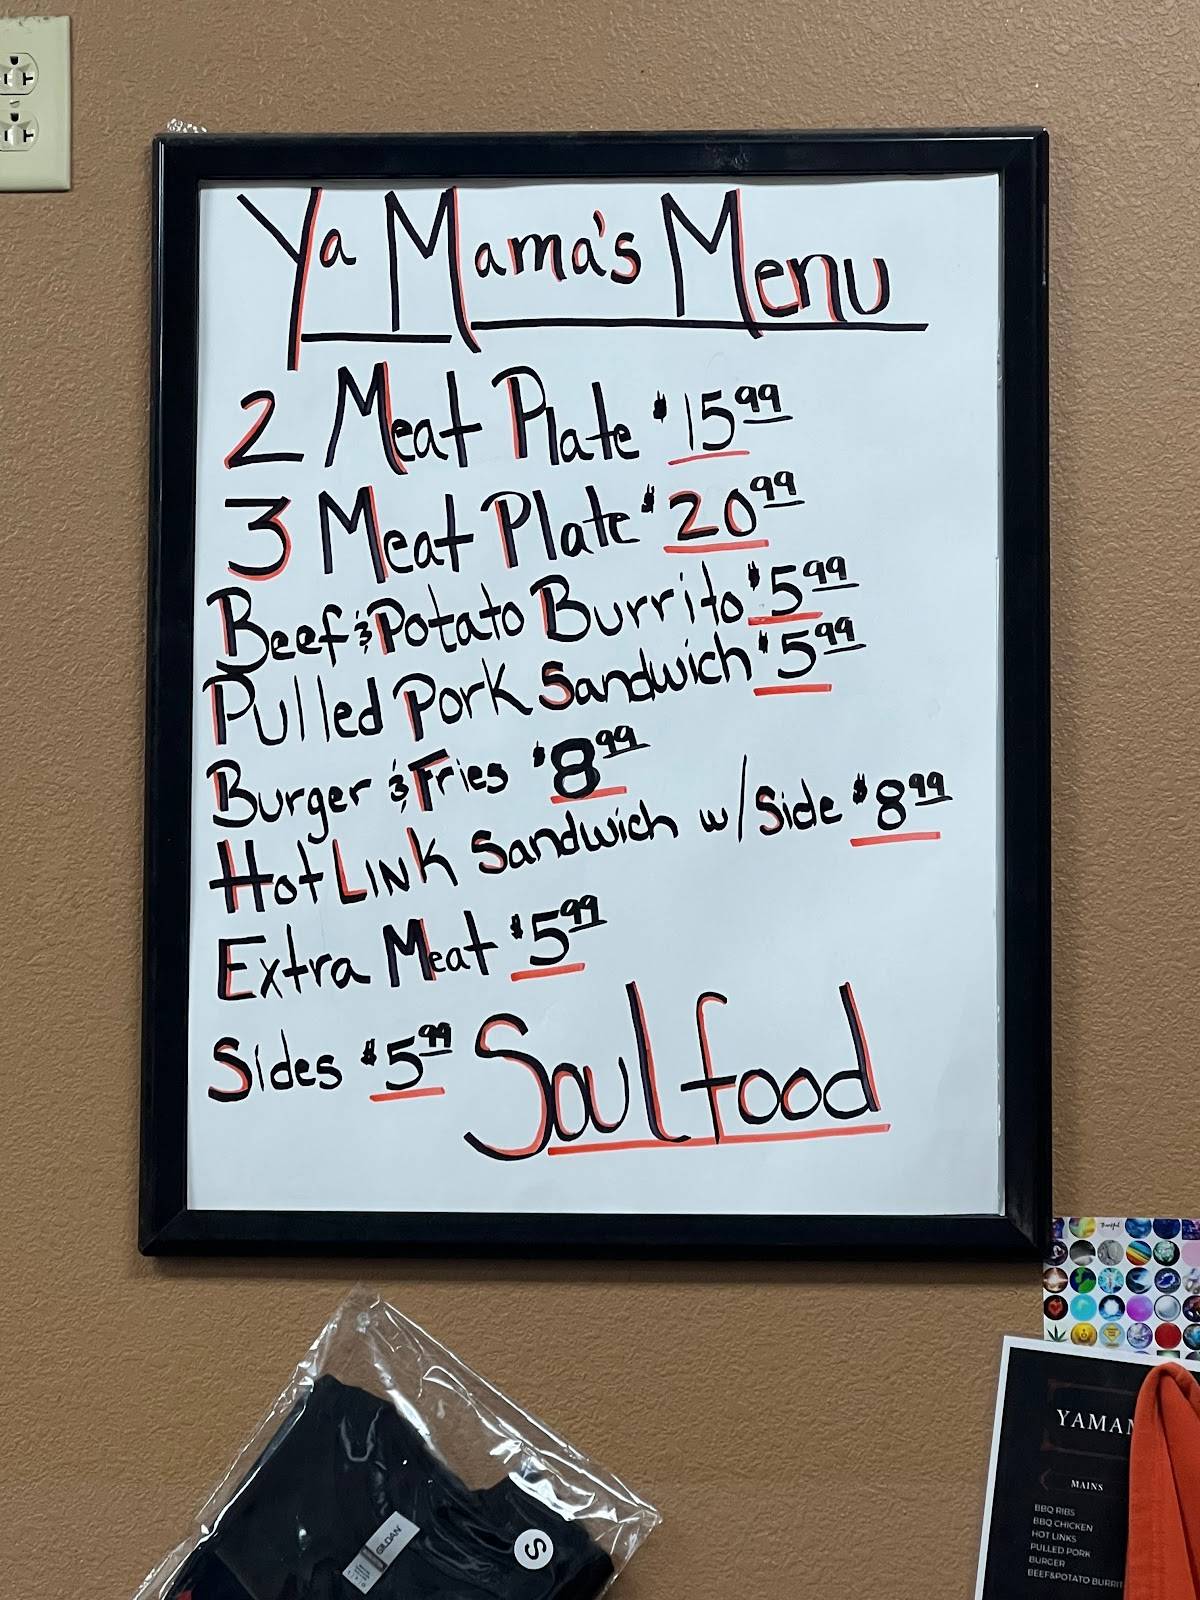 Ya Mama's Menu
2 Meat Plate $15.99
3 Meat Plate $20.99
Beef & Potato Burrito $5.99
Pulled Pork Sandwich $5.99
Burger & Fries $8.99
Hot Link Sandwich w/Side $8.99
Extra Meat $5.99
Sides $5.99 Soul food
GILDAN
S
YAMA
MAINS
BBQ RIBS
BBQ CHICKEN
HOT LINKS
PULLED PORK
BURGER
BEEF&POTATO BURRIT